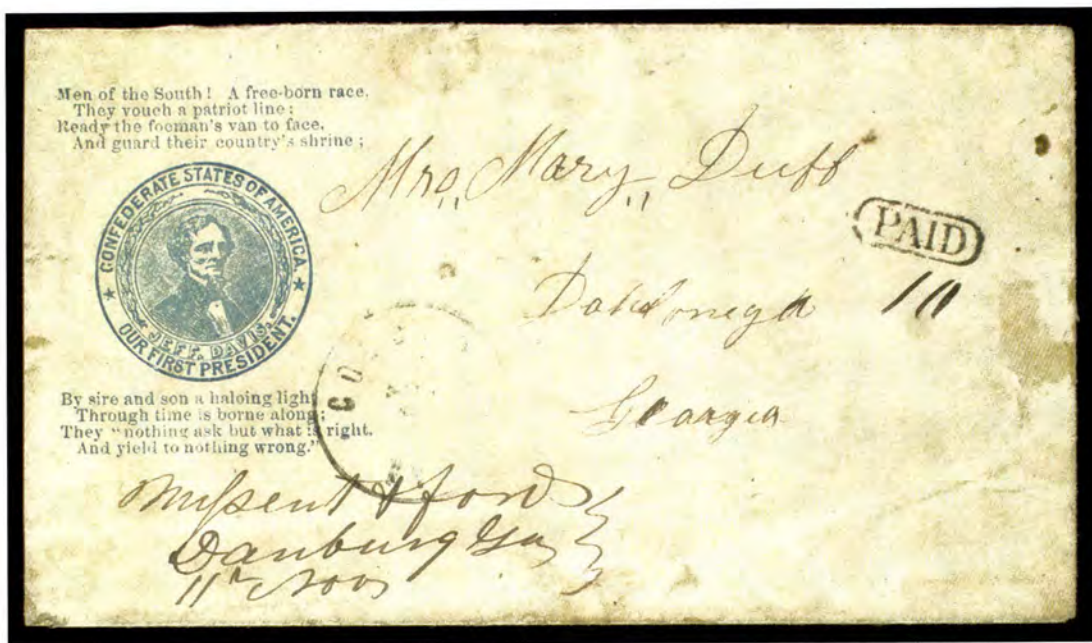 Men of the South! A free-born race,
They vouch a patriot line;
Ready the foeman's van to face,
And guard their country's shrine;
CONFEDERATE STATES OF AMERICA.
JEFF. DAVIS.
OUR FIRST PRESIDENT.
By sire and son a haloing light
Through time is borne along;
They "nothing ask but what is right,
And yield to nothing wrong."
Mrs. Mary Duff
PAID
Dahlonega 10
Georgia
CO
Missent & ford
Danburg Ga
11th Nov